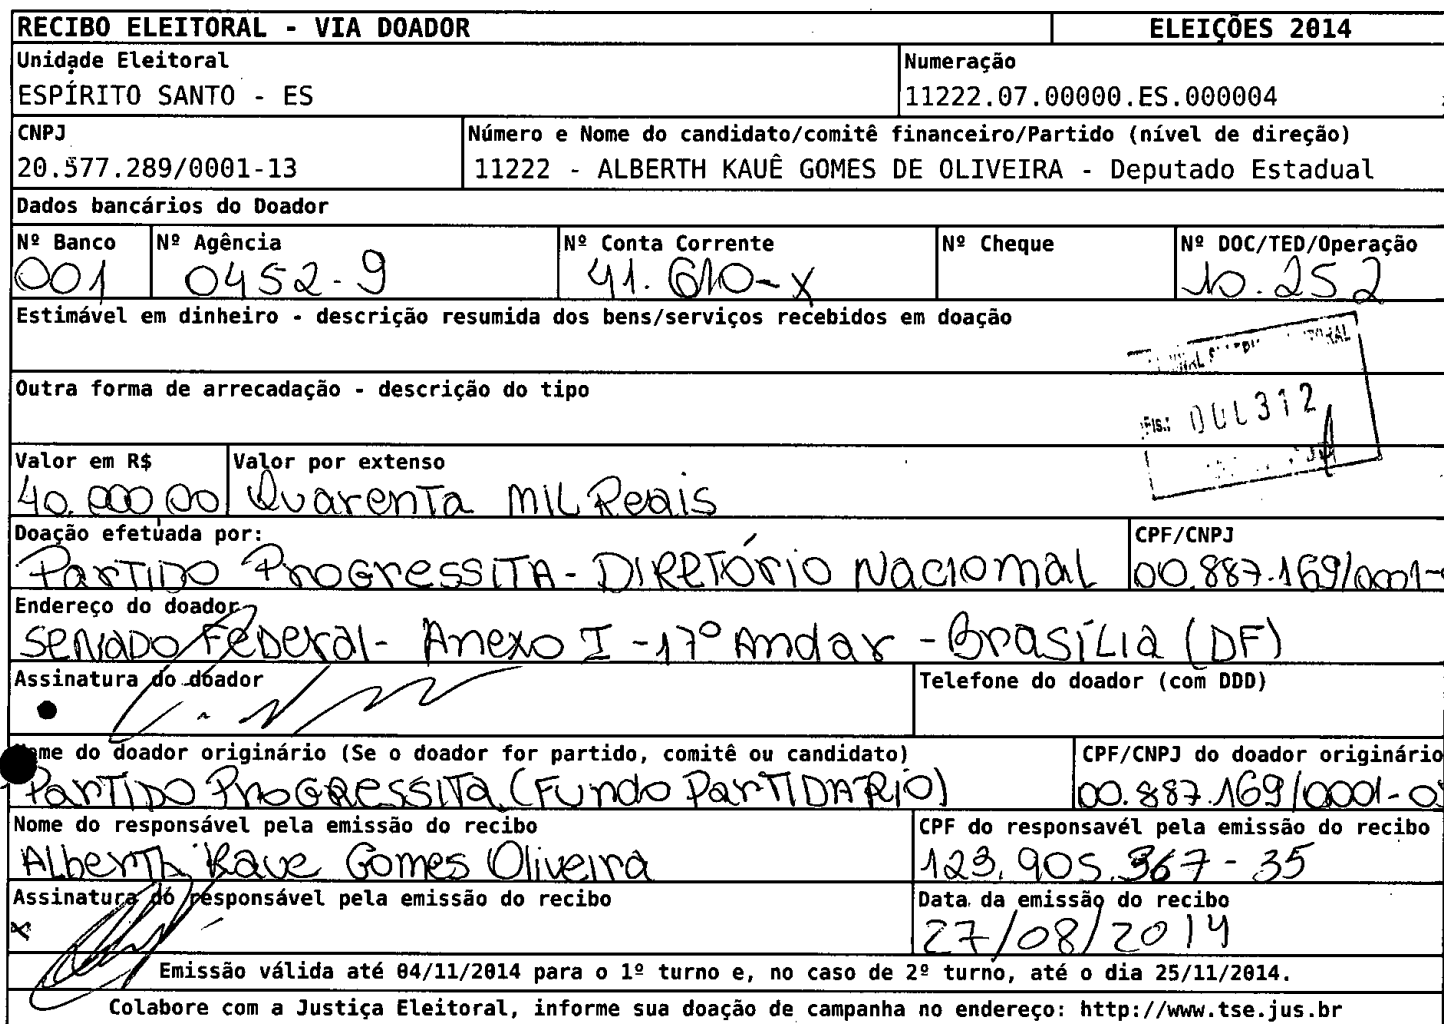 RECIBO ELEITORAL - VIA DOADOR ELEIÇÕES 2014
Unidade Eleitoral Numeração
ESPÍRITO SANTO - ES 11222.07.00000.ES.000004
CNPJ Número e Nome do candidato/comitê financeiro/Partido (nível de direção)
20.577.289/0001-13 11222 - ALBERTH KAUÊ GOMES DE OLIVEIRA - Deputado Estadual
Dados bancários do Doador
Nº Banco Nº Agência Nº Conta Corrente Nº Cheque Nº DOC/TED/Operação
001 0452-9 41.610-X 10.252
Estimável em dinheiro - descrição resumida dos bens/serviços recebidos em doação
Outra forma de arrecadação - descrição do tipo
Fls.: 312
Valor em R$ Valor por extenso
40.000 00 Quarenta mil Reais
Doação efetuada por: CPF/CNPJ
Partido Progressita - Diretório Nacional 00.887.169/0001-
Endereço do doador
Senado Federal - Anexo I - 17º Andar - Brasília (DF)
Assinatura do doador Telefone do doador (com DDD)
Nome do doador originário (Se o doador for partido, comitê ou candidato) CPF/CNPJ do doador originário
Partido Progressita (Fundo Partidario) 00.887.169/0001-0
Nome do responsável pela emissão do recibo CPF do responsavél pela emissão do recibo
Alberth Kaue Gomes Oliveira 123.905.367-35
Assinatura do responsável pela emissão do recibo Data da emissão do recibo
27/08/2014
Emissão válida até 04/11/2014 para o 1º turno e, no caso de 2º turno, até o dia 25/11/2014.
Colabore com a Justiça Eleitoral, informe sua doação de campanha no endereço: http://www.tse.jus.br